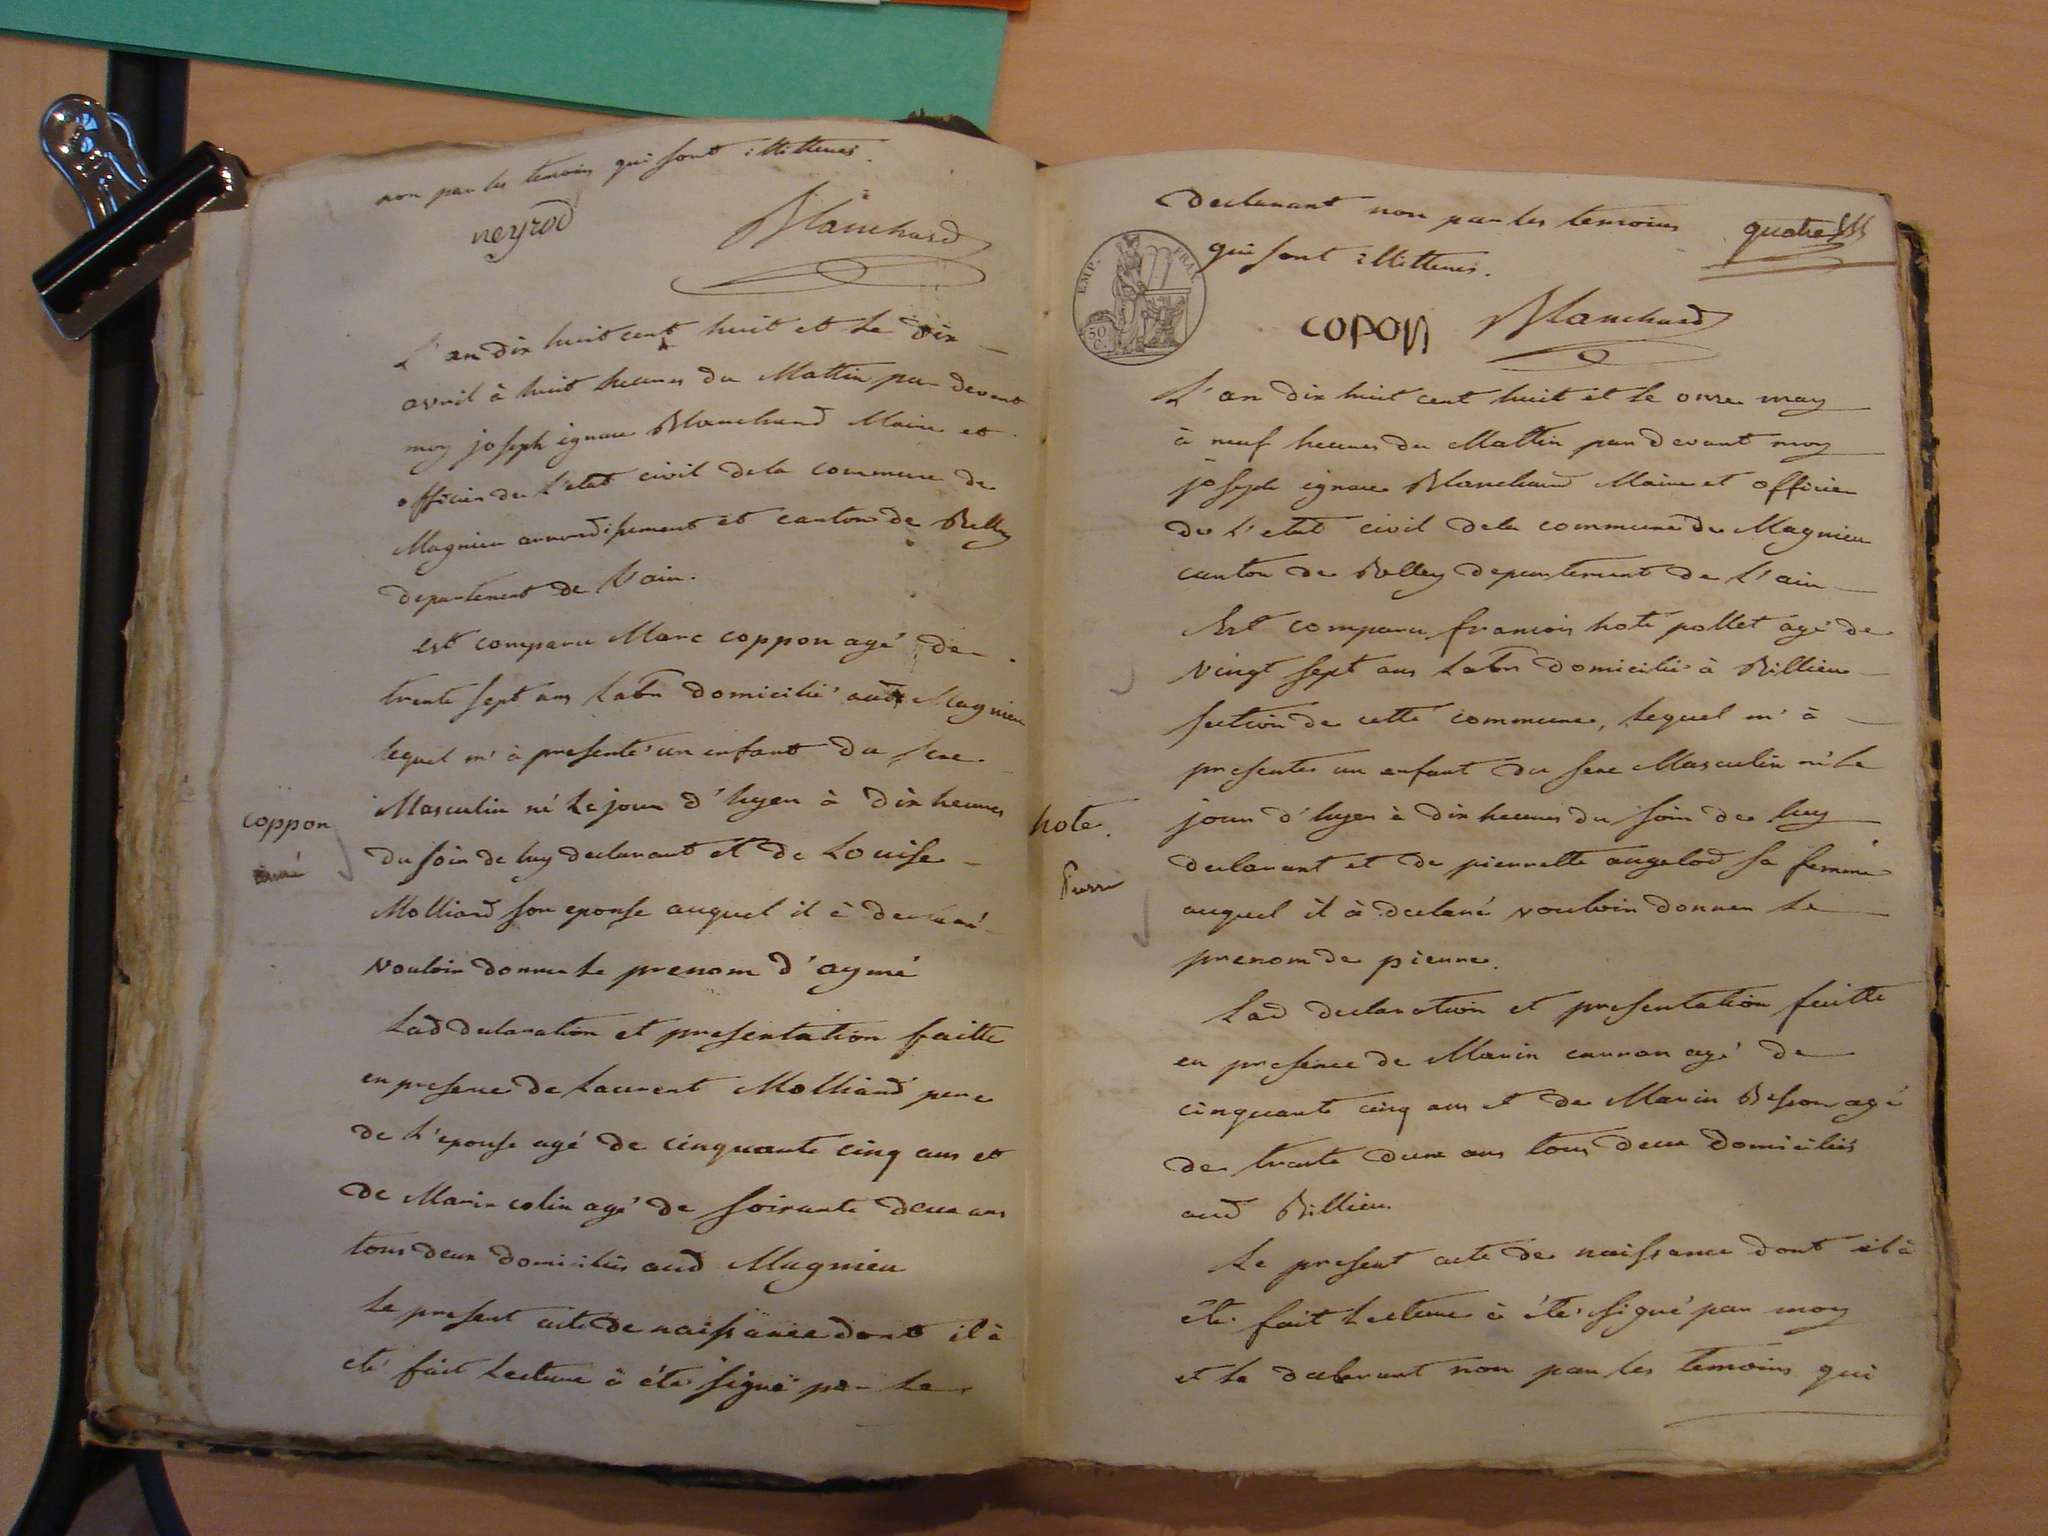 non par les temoins qui sont illitterés.
neyrod Blanchard
L'an dix huit cent huit et le dix
avril à huit heures du Mattin par devant
moy joseph ignace Blanchard Maire et
officier de L'etat civil dela commune de
Magnieu arrondissement et canton de Belley
departement de L'ain.
est comparu Marc coppon agé de
trente sept ans Labr domicilié aud Magnieu
lequel m'à presenté un enfant du sexe
Masculin né Le jour d'hyer à dix heures
du soir de luy declarant et de Louise
Molliard son epouse auquel il à declaré
vouloir donner Le prenom d'aymé
Lad declaration et presentation faitte
en presence de Laurent Molliard pere
de L'epouse agé de cinquante cinq ans et
de Marin colin agé de soixante deux ans
tous deux domiciliés aud Magnieu
Le present acte de naissance dont il à
eté fait Lecture à été signé par Le
coppon
aimé
declarant non par les temoins
qui sont illitterés.
quatre
EMP. FRAN.
50 C.
copon Blanchard
L'an dix huit cent huit et le onze may
à neuf heures du Mattin par devant moy
joseph ignace Blanchard Maire et officier
de L'etat civil dela commune de Magnieu
canton de Belley departement de L'ain
Est comparu francois hote pollet agé de
vingt sept ans Labr domicilié à Billieu
section de cette commune, lequel m'à
presentés un enfant du sexe Masculin né Le
jour d'hyer à dix heures du soir de luy
declarant et de pierrette augelod sa femme
auquel il à declaré vouloir donner Le
prenom de pierre.
Lad declaration et presentation faitte
en presence de Marin carron agé de
cinquante cinq ans et de Marin Besson agé
de trente deux ans tous deux domiciliés
aud Billieu
Le present acte de naissance dont il à
été fait Lecture à été signé par moy
et Le declarant non par les temoins qui
hote.
Pierre